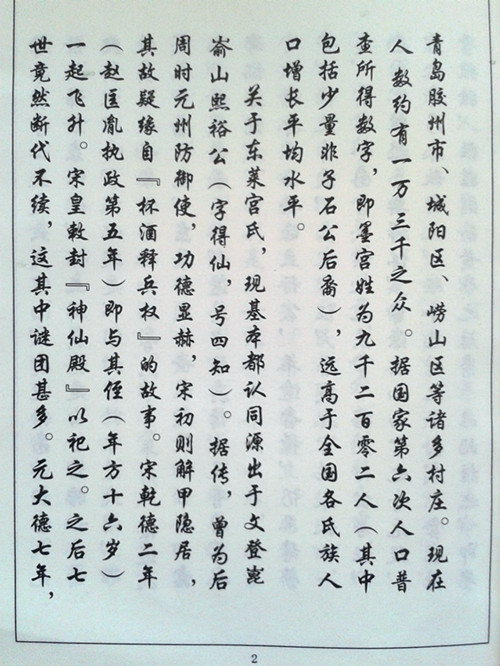 青岛胶州市、城阳区、崂山区等诸多村庄。现在
人数约有一万三千之众。据国家第六次人口普
查所得数字，即墨宫姓为九千二百零二人（其中
包括少量非子石公后裔），远高于全国各氏族人
口增长平均水平。
关于东莱宫氏，现基本都认同源出于文登崑
嵛山熙裕公（字得仙，号四知）。据传，曾为后
周时元州防御使，功德显赫，宋初则解甲隐居，
其故疑缘自『杯酒释兵权』的故事。宋乾德二年
（赵匡胤执政第五年）即与其侄（年方十六岁）
一起飞升。宋皇敕封『神仙殿』以祀之。之后七
世竟然断代不续，这其中谜团甚多。元大德七年，
2